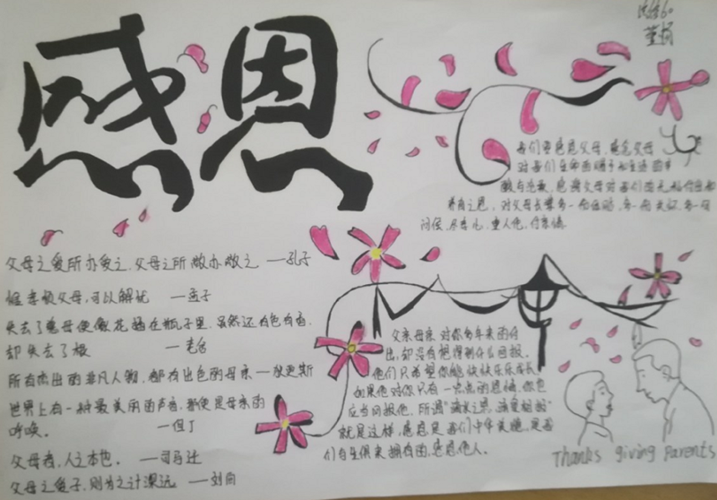 感恩
父母之爱所亦爱之,父母之所敬亦敬之 —孔子
惟孝顺父母,可以解忧 —孟子
失去了慈母便像花插在瓶子里,虽然还有色有香,
却失去了根 —老舍
所有杰出的非凡人物,都有出色的母亲—狄更斯
世界上有一种最美丽的声音,那便是母亲的
呼唤。 —但丁
父母者,人之本也。 —司马迁
父母之爱子,则为之计深远 —刘向
我们要感恩父母,感恩父母
对我们生命的赐予
养育之恩,对父母
问候
父亲母亲对你多年来的付
出,却没有想得到什么回报。
他们只希望你能快快乐乐成长
如果他对你只有一点点的恩情,你也
应当回报他,所谓"滴水之恩,涌泉相报"
就是这样,感恩是我们中华美德,是我
们与生俱来拥有的,感恩他人。
Thanks giving Parents